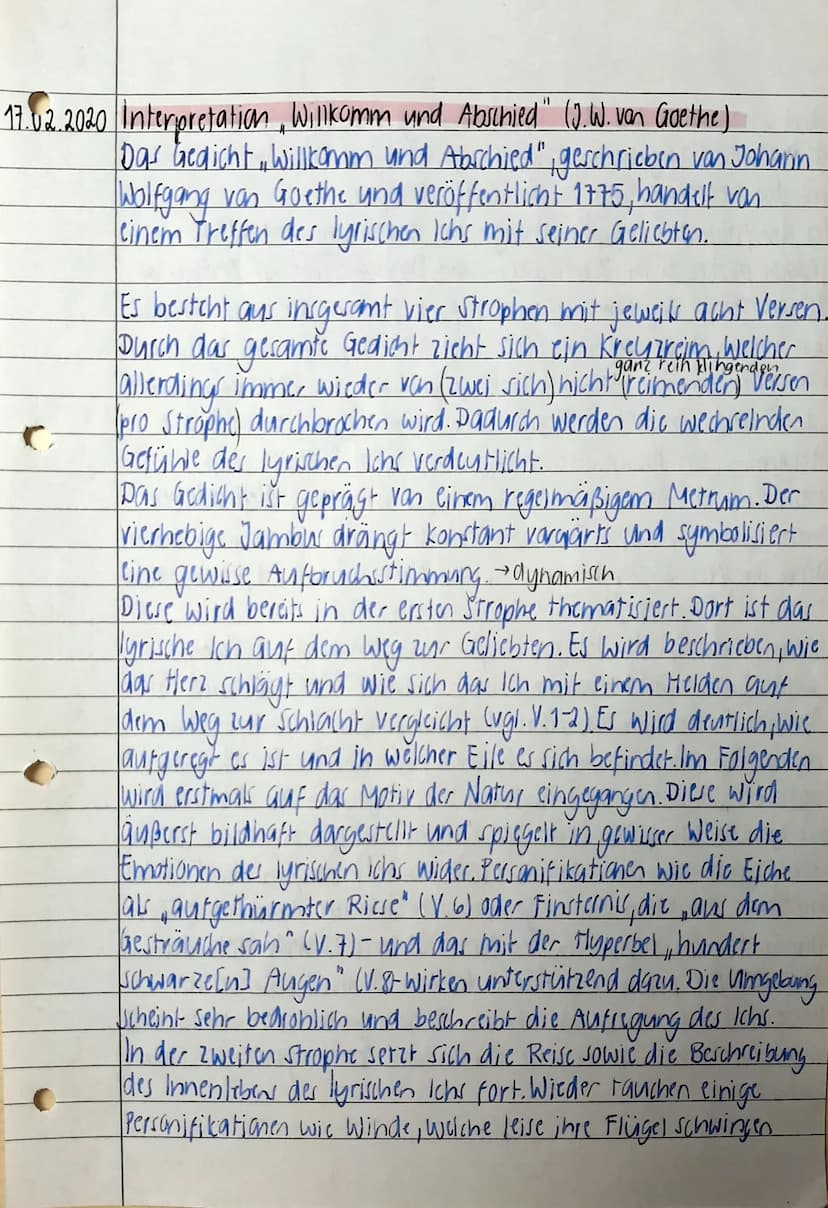 17.02.2020 Interpretation „Willkomm und Abschied" (J.W. von Goethe)
Das Gedicht „Willkomm und Abschied", geschrieben von Johann
Wolfgang von Goethe und veröffentlicht 1775, handelt von
einem Treffen des lyrischen Ichs mit seiner Geliebten.
Es besteht aus insgesamt vier Strophen mit jeweils acht Versen.
Durch das gesamte Gedicht zieht sich ein Kreuzreim, welcher
ganz rein klingenden
allerdings immer wieder von (zwei sich) nicht (reimenden) Versen
(pro Strophe) durchbrochen wird. Dadurch werden die wechselnden
Gefühle des lyrischen Ichs verdeutlicht.
Das Gedicht ist geprägt von einem regelmäßigem Metrum. Der
vierhebige Jambus drängt konstant vorwärts und symbolisiert
eine gewisse Aufbruchsstimmung. → dynamisch
Diese wird bereits in der ersten Strophe thematisiert. Dort ist das
lyrische Ich auf dem Weg zur Geliebten. Es wird beschrieben, wie
das Herz schlägt und wie sich das Ich mit einem Helden auf
dem Weg zur Schlacht vergleicht (vgl. V. 1-2). Es wird deutlich, wie
aufgeregt es ist und in welcher Eile es sich befindet. Im Folgenden
wird erstmals auf das Motiv der Natur eingegangen. Diese wird
äußerst bildhaft dargestellt und spiegelt in gewisser Weise die
Emotionen des lyrischen Ichs wider. Personifikationen wie die Eiche
als „aufgethürmter Riese" (V. 6) oder Finsternis, die „aus dem
Gesträuche sah" (V. 7) - und das mit der Hyperbel „hundert
schwarze[n] Augen" (V. 8)- wirken unterstützend dazu. Die Umgebung
scheint sehr bedrohlich und beschreibt die Aufregung des Ichs.
In der zweiten Strophe setzt sich die Reise sowie die Beschreibung
des Innenlebens des lyrischen Ichs fort. Wieder tauchen einige
Personifikationen wie Winde, welche leise ihre Flügel schwingen